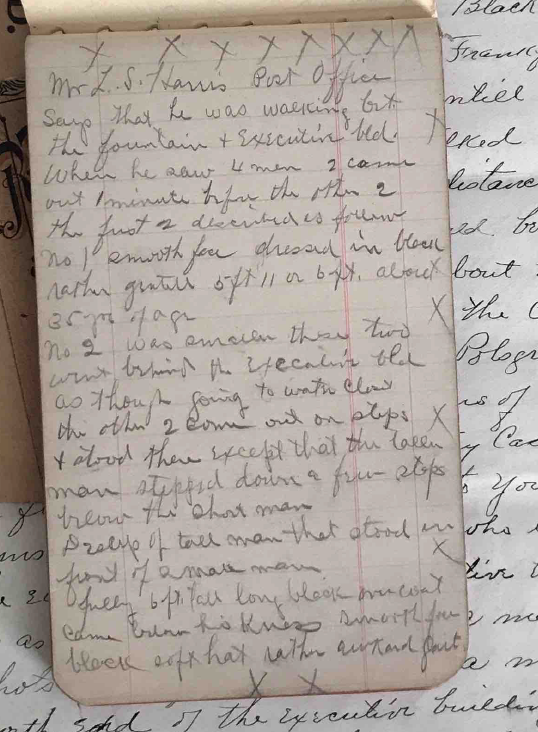 x x x x x x x
Mr L. S. Harris Post Office
Says that he was walking bet.
the fountain + Executive bld.
When he saw 4 men 2 came
out 1 minute before the other 2
the first 2 described as follow
No 1 smooth face dressed in black
rather 5 ft 11 or 6 ft. about
35 yrs of age
No 2 was smaller these two
went behind the Executive bld
as though going to water closet
the other 2 come out on steps
+ stood there except that the taller
man stepped down a few steps
below the short man
of tall man that stood in
front of small man
fully 6 ft tall long black overcoat
came below his knees smooth face
black soft hat rather
x x
Black
Frank
ntill
lked
distance
ed. b
bout
The C
of
y
You
who
live
a m
as
north End of the Executive building